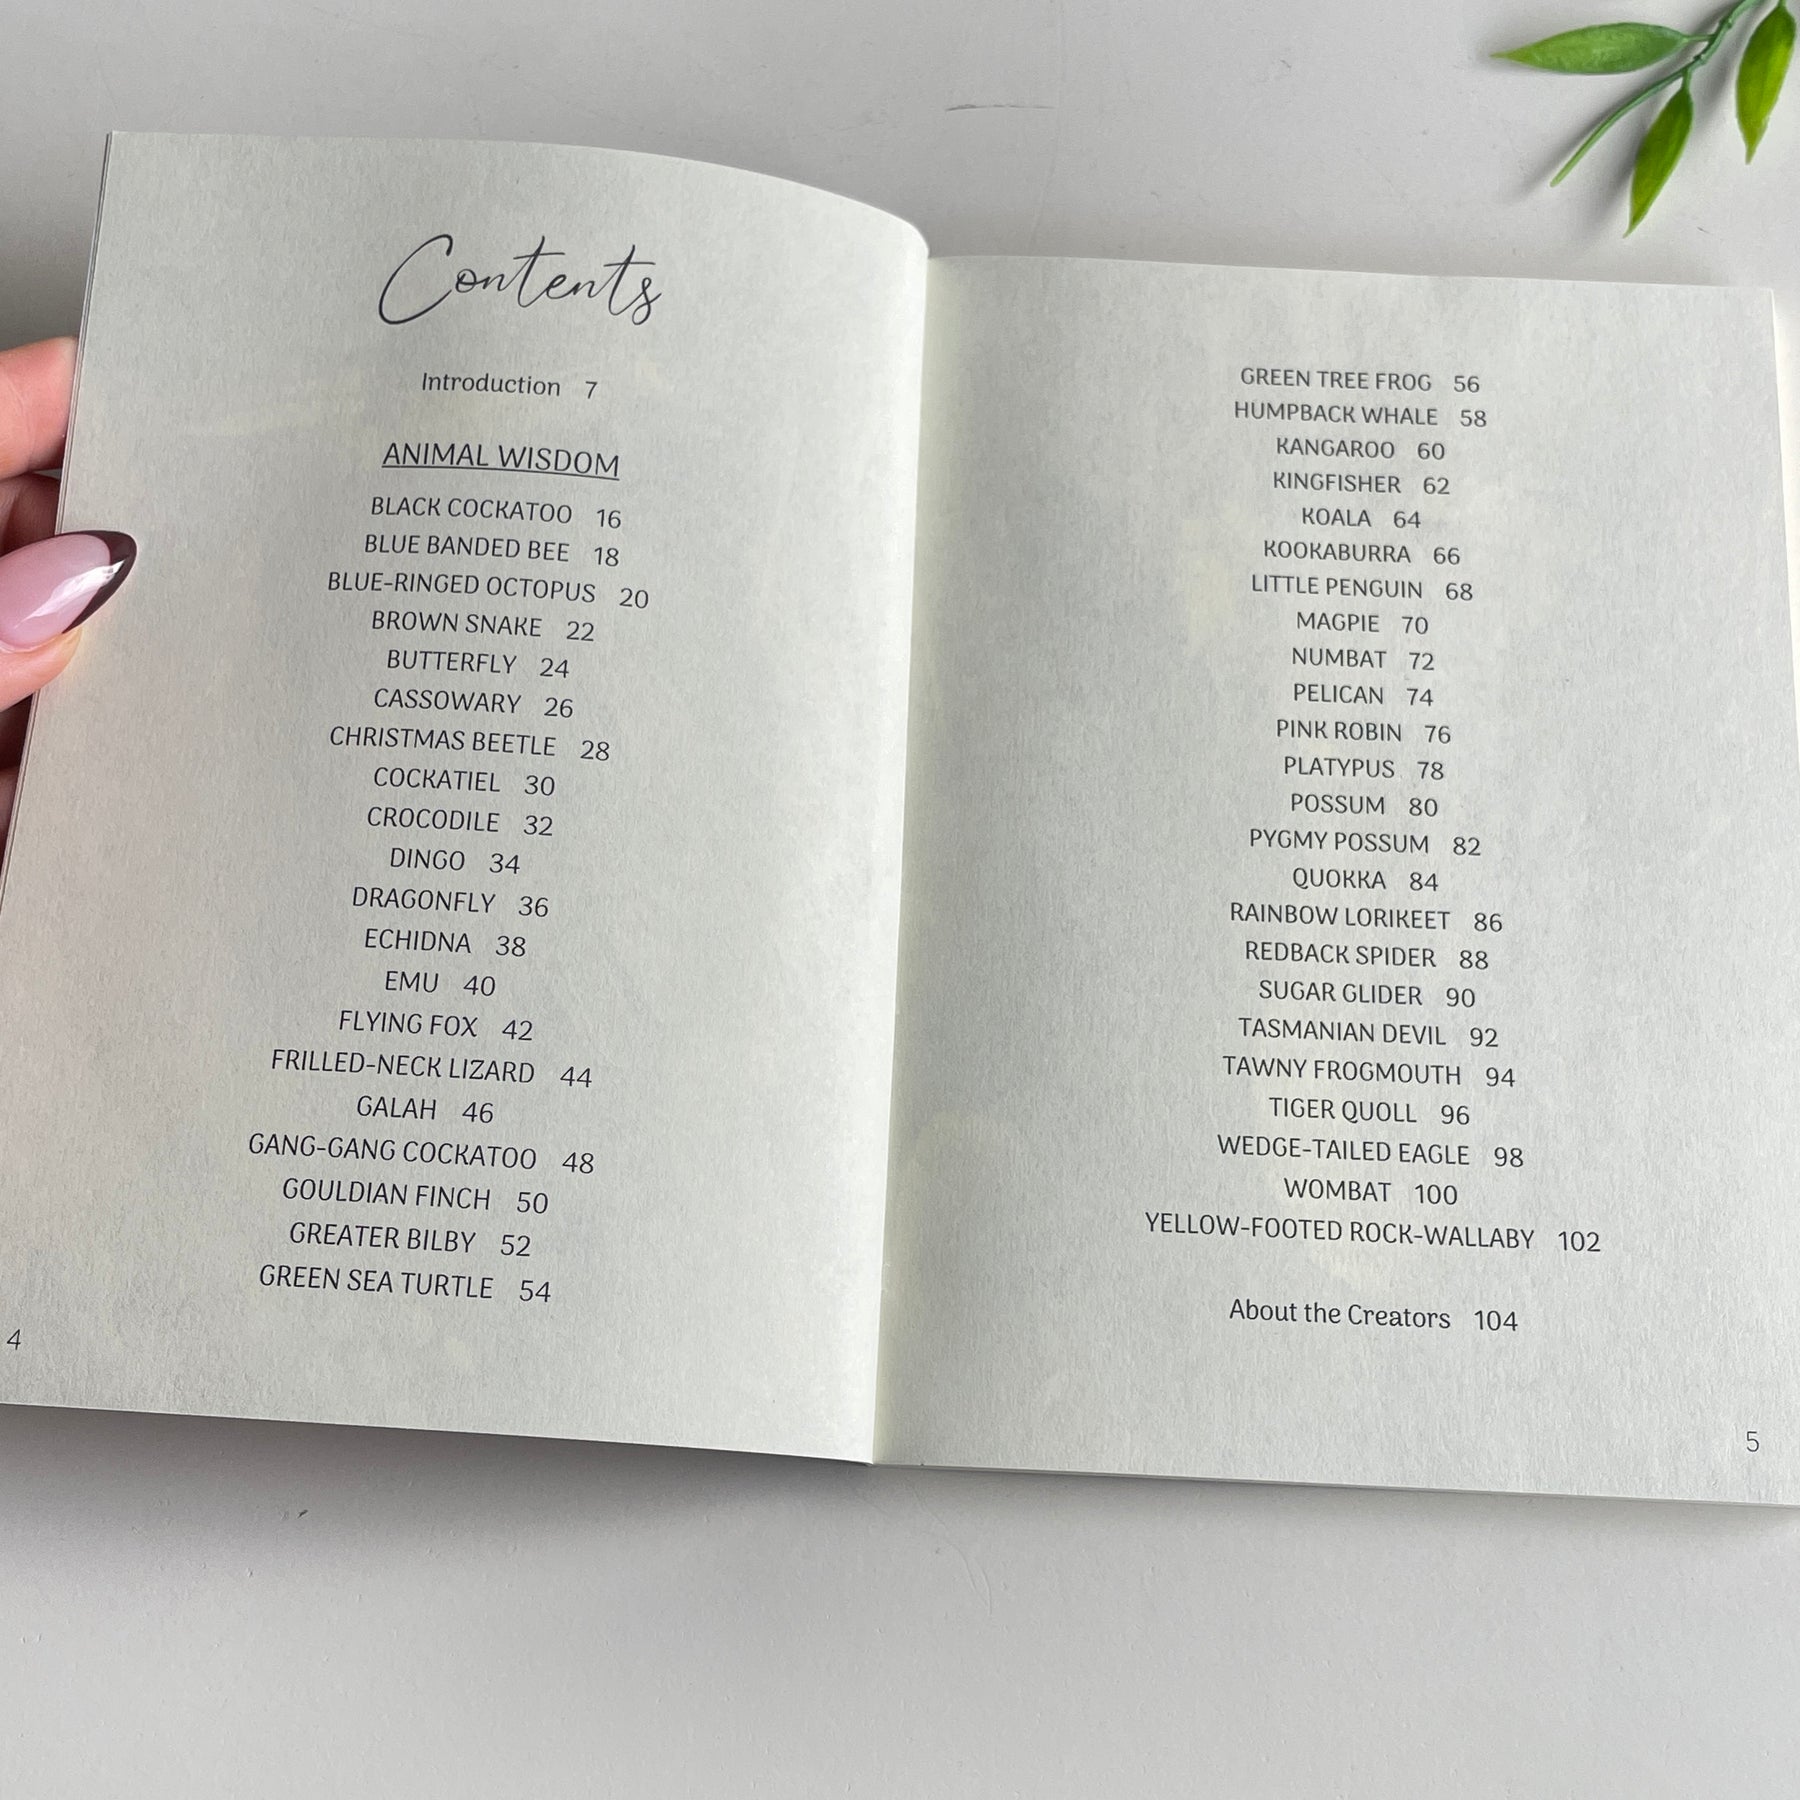 Contents
Introduction 7
ANIMAL WISDOM
BLACK COCKATOO 16
BLUE BANDED BEE 18
BLUE-RINGED OCTOPUS 20
BROWN SNAKE 22
BUTTERFLY 24
CASSOWARY 26
CHRISTMAS BEETLE 28
COCKATIEL 30
CROCODILE 32
DINGO 34
DRAGONFLY 36
ECHIDNA 38
EMU 40
FLYING FOX 42
FRILLED-NECK LIZARD 44
GALAH 46
GANG-GANG COCKATOO 48
GOULDIAN FINCH 50
GREATER BILBY 52
GREEN SEA TURTLE 54
4
GREEN TREE FROG 56
HUMPBACK WHALE 58
KANGAROO 60
KINGFISHER 62
KOALA 64
KOOKABURRA 66
LITTLE PENGUIN 68
MAGPIE 70
NUMBAT 72
PELICAN 74
PINK ROBIN 76
PLATYPUS 78
POSSUM 80
PYGMY POSSUM 82
QUOKKA 84
RAINBOW LORIKEET 86
REDBACK SPIDER 88
SUGAR GLIDER 90
TASMANIAN DEVIL 92
TAWNY FROGMOUTH 94
TIGER QUOLL 96
WEDGE-TAILED EAGLE 98
WOMBAT 100
YELLOW-FOOTED ROCK-WALLABY 102
About the Creators 104
5